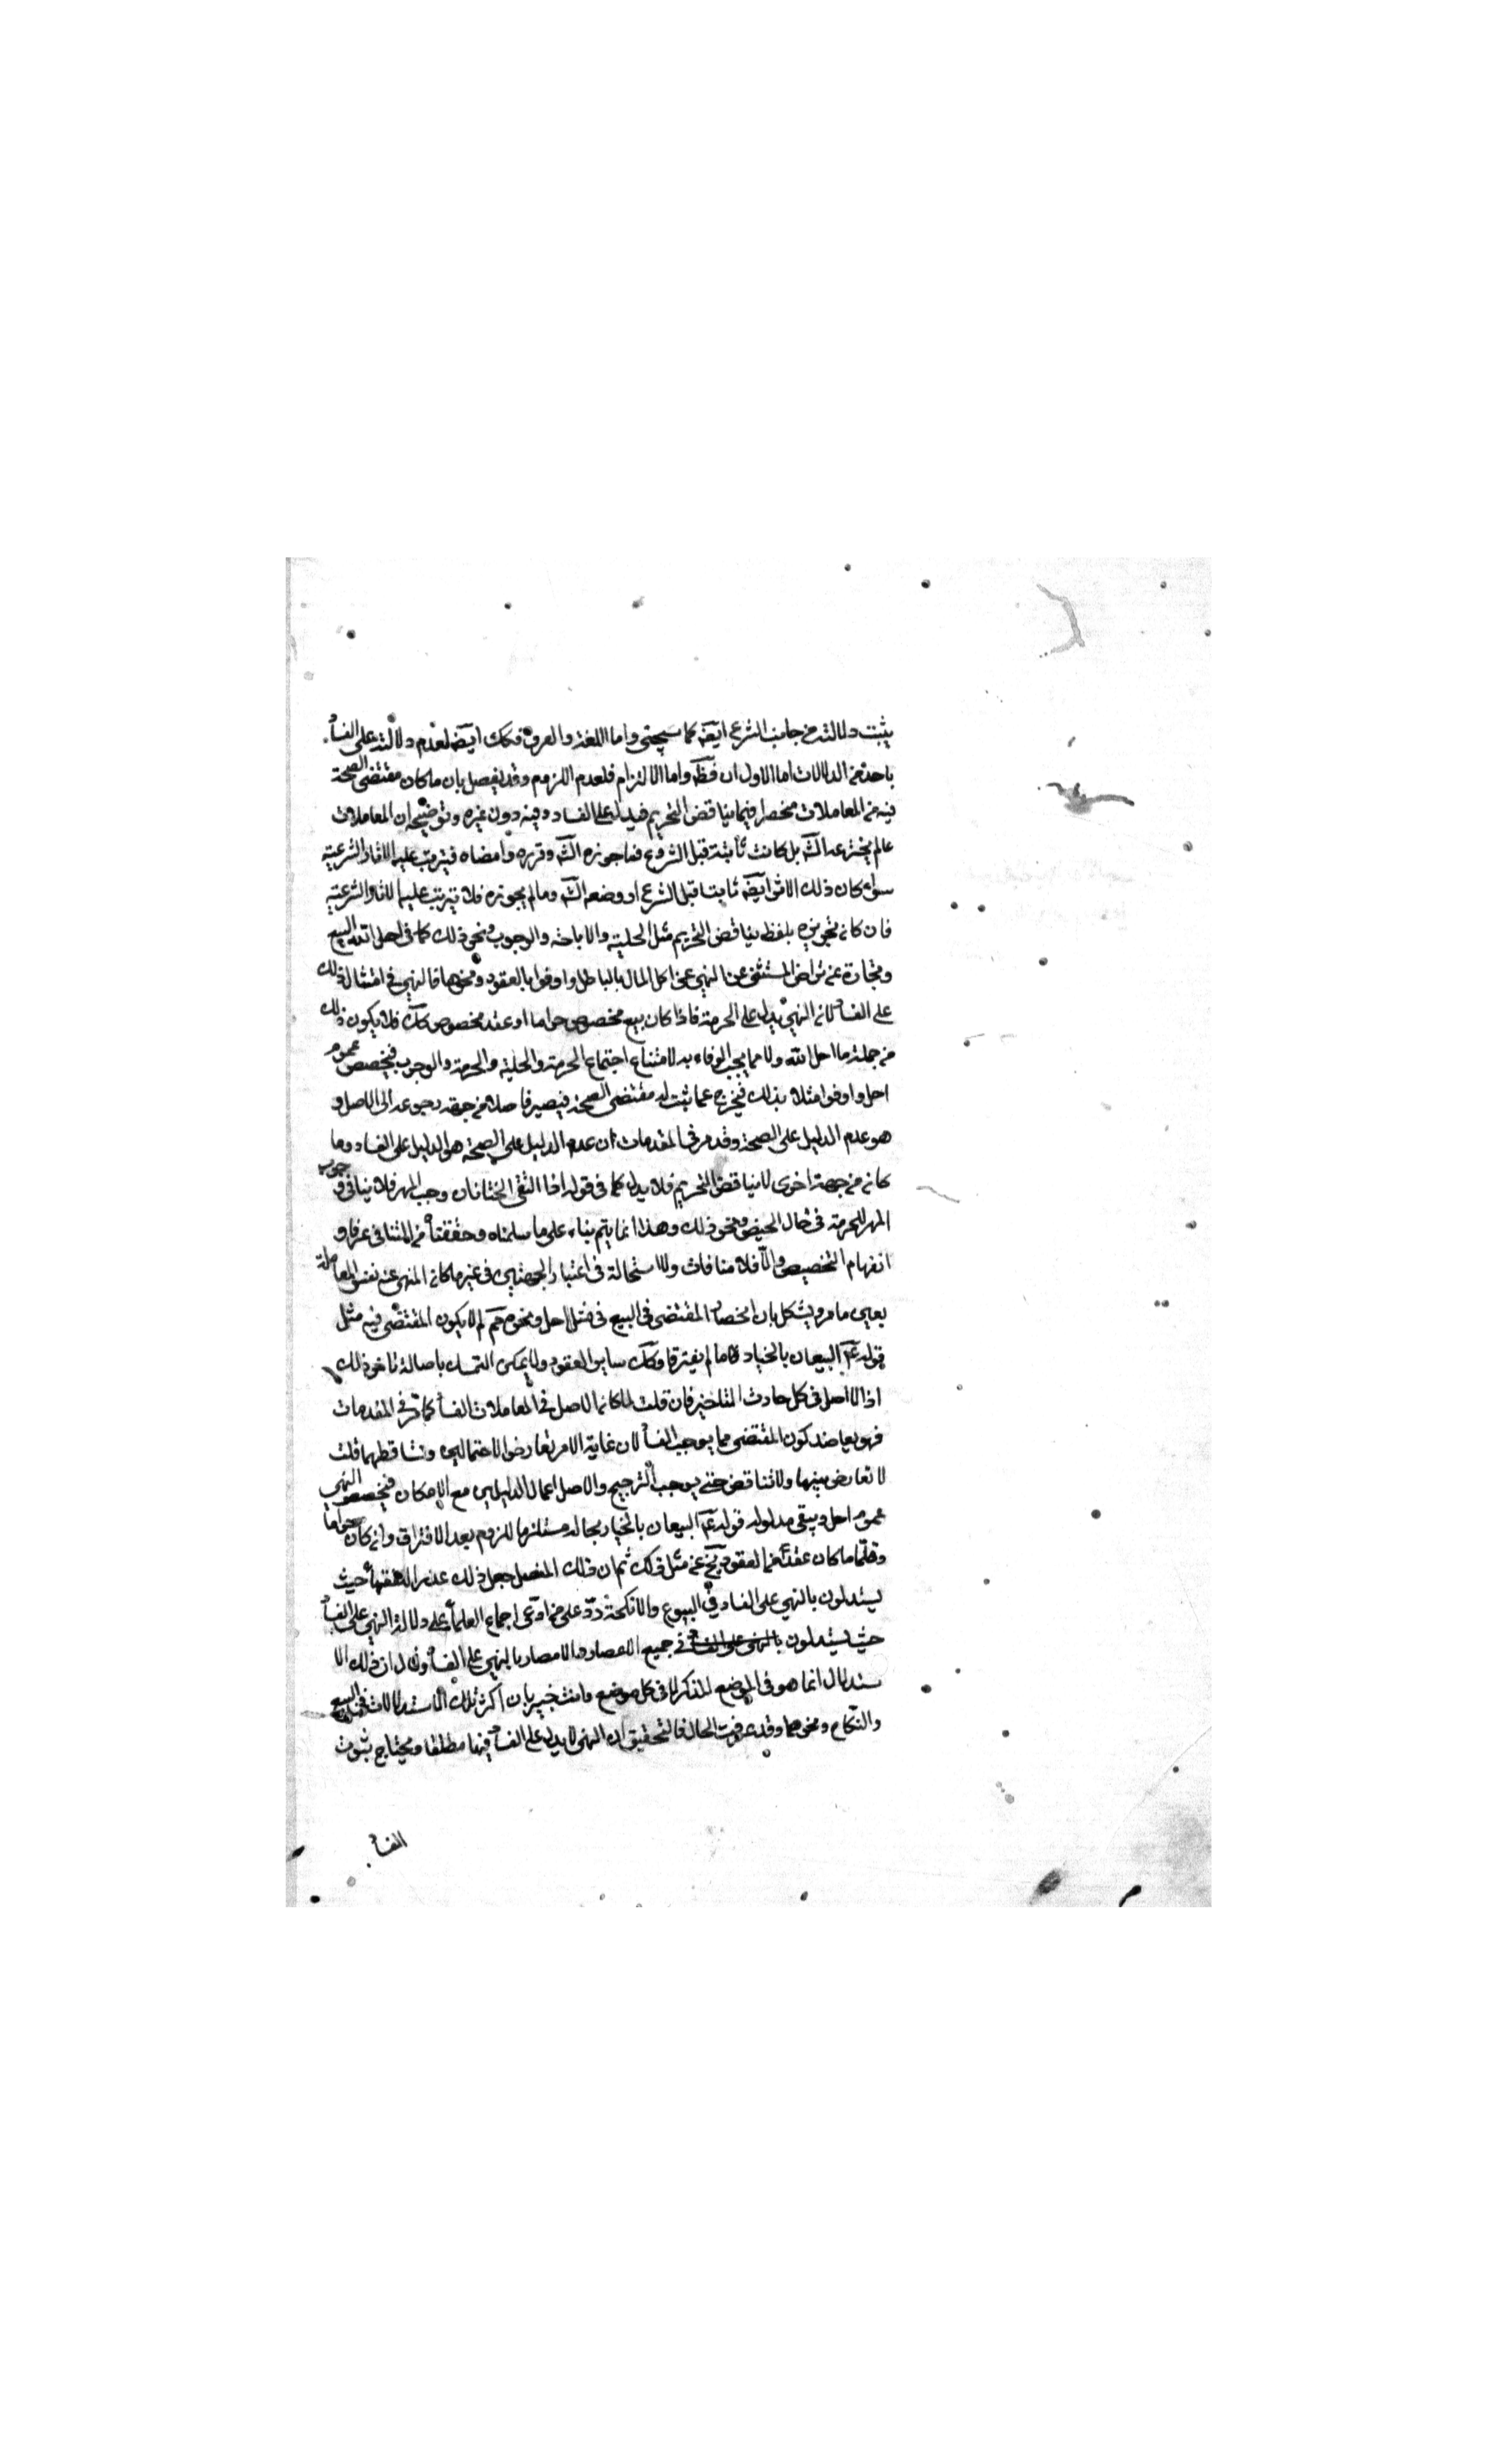 يثبت دلالته من جانب الشرع ايضه كما سيجئ واما اللغة والعرف فكك ايضه لعدم دلالته على الفسا
باحدى من الدلالات اما الاولان فظه واما الالتزام فلعدم اللزوم وقد يفصل بان ما كان مقتضى الصحة
فيه من المعاملات منحصرا فيما يناقض التحريم فيدل على الفساد وفيه دون غيره وتوضيحه ان المعاملات
مما لم يخترعه الشه بل كانت ثابتة قبل الشرع فما جوزه الشه وقرره وامضاه فيترتب عليه الاثار الشرعية
سواء كان ذلك الاثر ايضه ثابتا قبل الشرع او وضعه الشه وما لم يجوزه فلا يترتب عليه الاثار الشرعية
فان كان تجويزه بلفظ يناقض التحريم مثل الحلية والاباحة والوجوب ونحو ذلك كما في احل الله البيع
وتجارة عن تراض المستثنى عن النهي عن اكل المال بالباطل واوفوا بالعقود ونحوها فالنهي في امثال ذلك
على الفسا لان النهي يدل على الحرمة فاذا كان بيع مخصوص حراما او عقد مخصوص كك فلا يكون ذلك
من جملة ما احل الله ولا مما يجب الوفاء به لامتناع اجتماع الحرمة والحلية والحرمة والوجوب فيخصص عموم
احل واوفوا مثلا بذلك فيخرج عما ثبت له مقتضى الصحة فيصير فاصلا من جهة رجوعه الى الاصل و
هو عدم الدليل على الصحة وقد مر في المقدمات ان عدم الدليل على الصحة هو الدليل على الفساد وما
كان من جهة اخرى لا يناقض التحريم فلا يدل كما في قوله اذا التقى الختانان وجب المهر فلا ينافى وجوب
المهر للحرمة في حال الحيض ونحو ذلك وهذا انما يتم بناء على ما سلمناه وحققنا من التنافي عرفا و
انفهام التخصيص والا فلا منافات ولا استحالة في اعتبار الجهتين في غير ما كان المنهي عنه نفس المعاملة
بعين ما مر ويشكل بان انحصا المقتضى في البيع في مثل احل ونحوه مم لم لا يكون المقتضى فيه مثل
قوله عم البيعان بالخيار ما لم يفترقا وكك ساير العقود ولا يمكن التمسك باصالة تاخر ذلك
اذ الاصل في كل حادث التاخير فان قلت لما كان الاصل في المعاملات الفسا كما مر في المقدمات
فهو يعاضد كون المقتضى مما يوجب الفسا لان غاية الامر تعارض الاحتمالين وتساقطهما قلت
لا تعارض بينها ولا تناقض حتى يوجب الترجيح والاصل اعمال الدليلين مع الامكان فيخصص النهي
عموم احل ويبقى مدلول قوله عم البيعان بالخيار بحاله مستلزما للزوم بعد الافتراق وان كان حراما
وقلما ما كان عقد من العقود يخ عن مثل ذلك ثم ان ذلك المفصل جعل ذلك عذر الفقها حيث
يستدلون بالنهي على الفساد في البيوع والانكحة ردّ على من ادعى اجماع العلما على دلالة النهي على الفسا
حيث يستدلون في جميع الاعصار والامصار بالنهي على الفسا وقال ان ذلك الا
ستدلال انما هو في الموضع المذكر لا في كل موضع وانت خبير بان اكثر تلك الاستدلالات في البيع
والنكاح ونحوهما وقد عرفت الحال فالتحقيق ان النهي لا يدل على الفسا فيها مطلقا ويحتاج ثبوت
الفسا